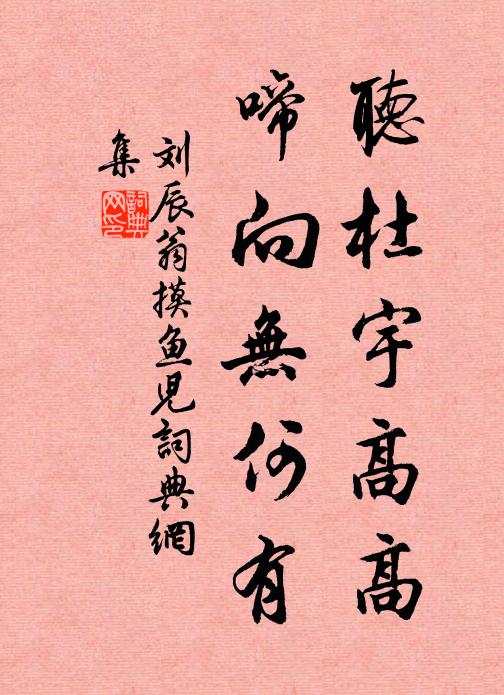 聽杜宇高高
啼向無何有
刘辰翁摸鱼児詞典網
集
詞典網印